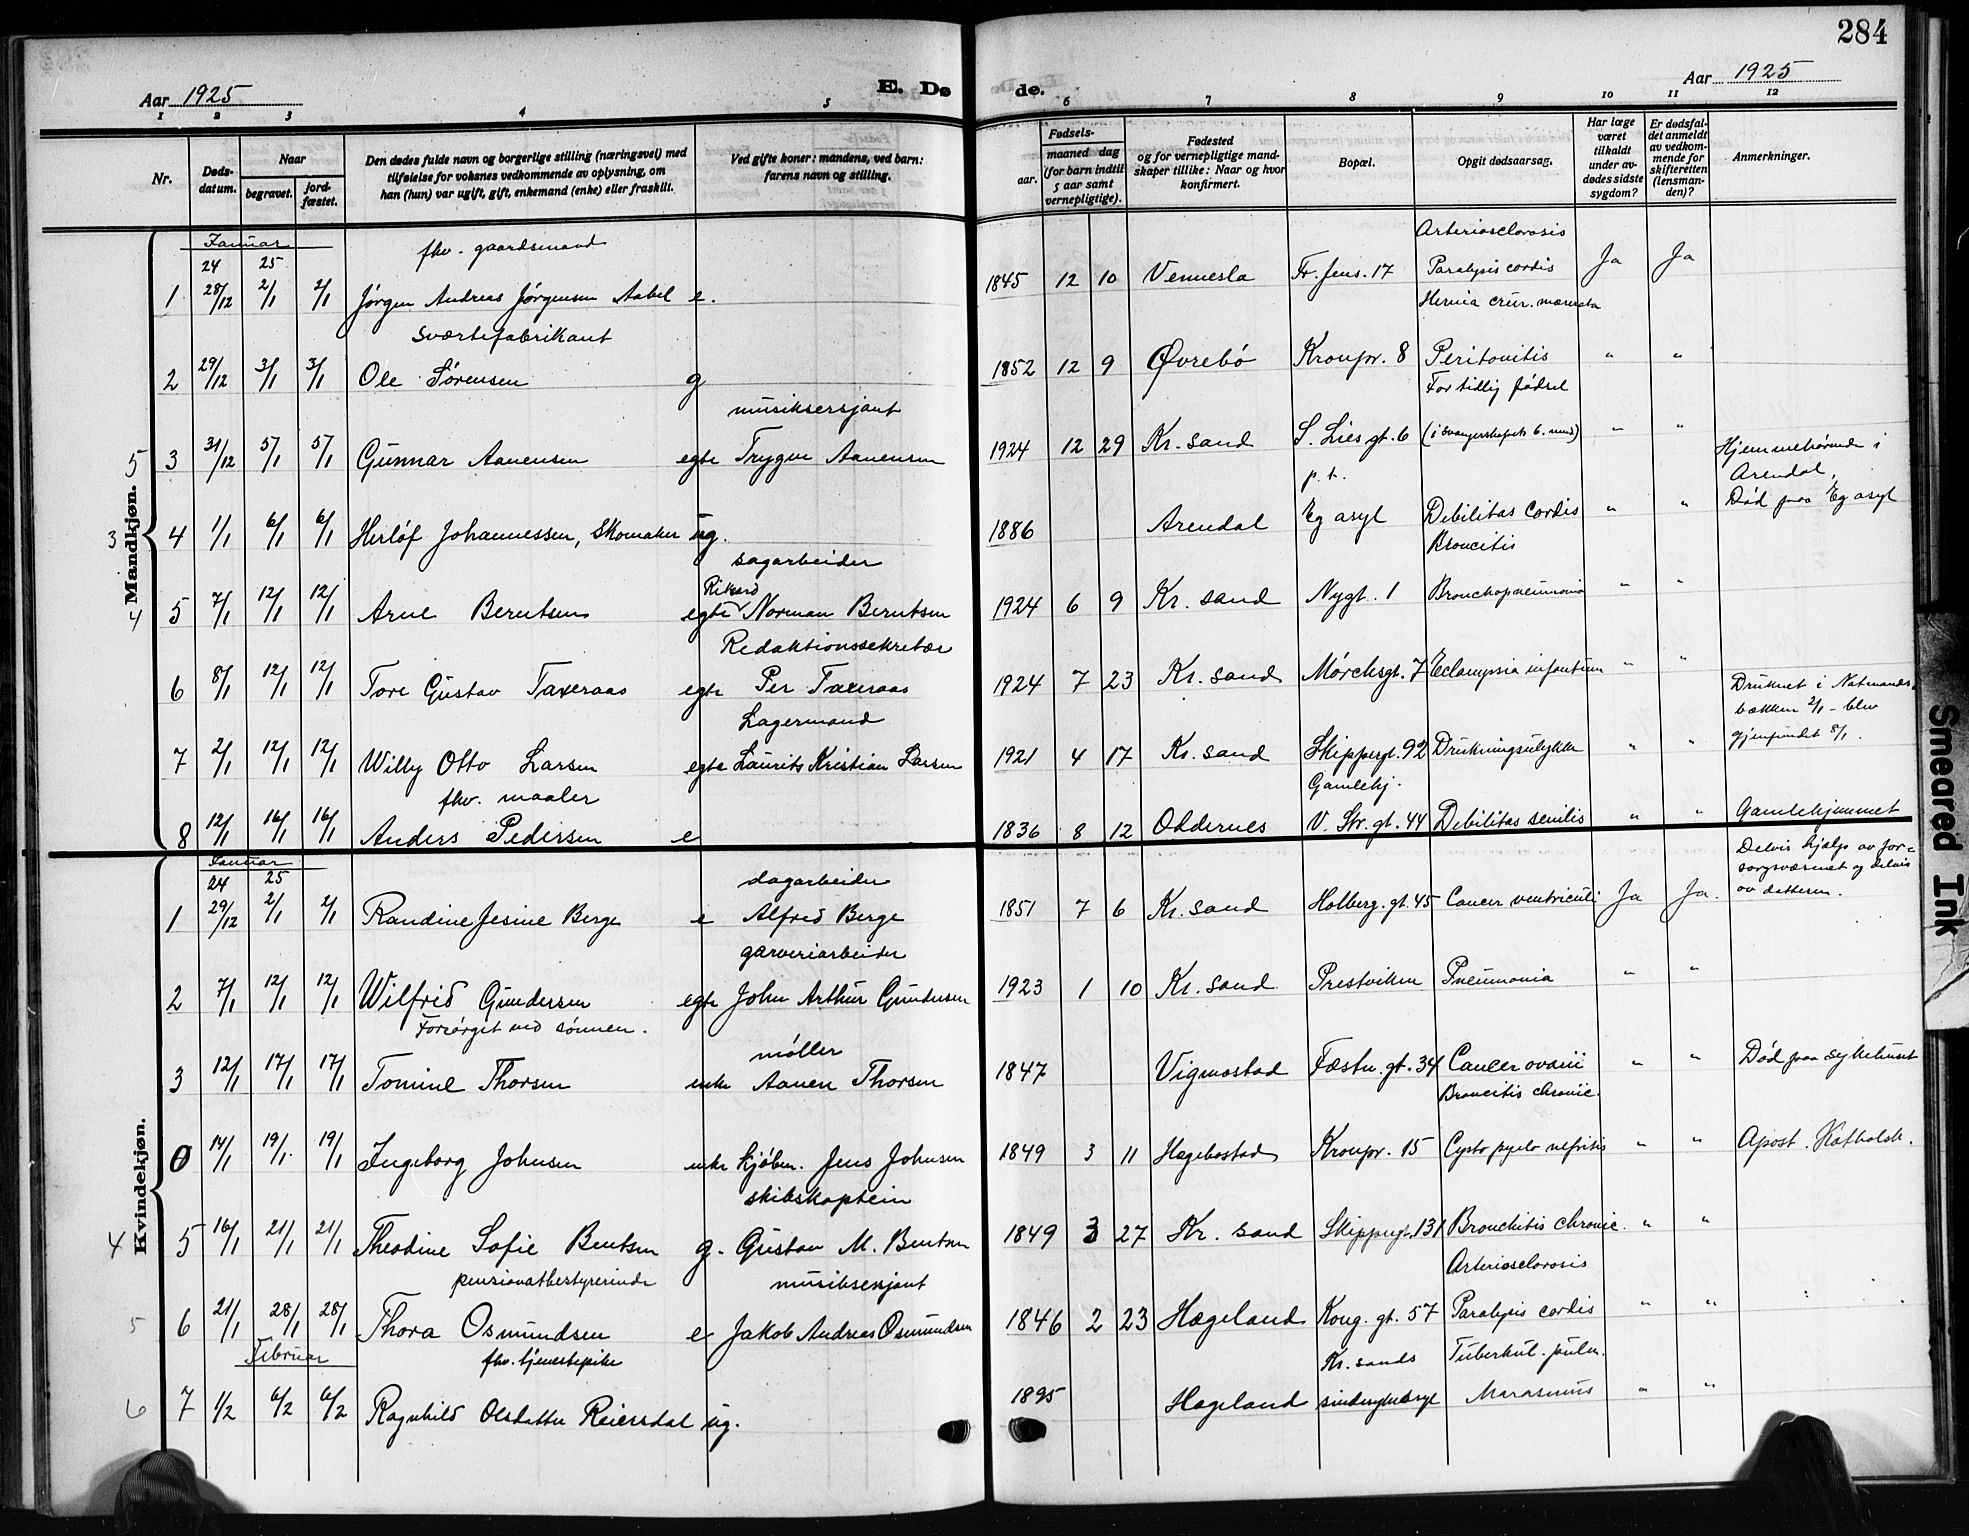 284
Aar 1925
E. Dø
de.
Aar 1925
1 2 3 4 5 6 7 8 9 10 11 12
Nr.
Døds-
datum.
Naar
begravet.
jord-
fæstet.
Den dødes fulde navn og borgerlige stilling (næringsvei) med
tilføielse for voksnes vedkommende av oplysning, om
han (hun) var ugift, gift, enkemand (enke) eller fraskilt.
Ved gifte koner: mandens, ved barn:
farens navn og stilling.
Fødsels-
aar.
maaned dag
(for barn indtil
5 aar samt
vernepligtige).
Fødested
og for vernepligtige mand-
skaper tillike: Naar og hvor
konfirmert.
Bopæl.
Opgit dødsaarsag.
Har læge
været
tilkaldt
under av-
dødes sidste
sygdom?
Er dødsfal-
det anmeldt
av vedkom-
mende for
skifteretten
(lensman-
den)?
Anmerkninger.
Mandkjøn.
Januar
24 25
fhv. gaardsmand
Arteriosclorosis
1 28/12 2/1 2/1 Jørgen Andreas Jørgensen Aabel e. 1845 12 10 Vennesla Fr. Jens. 17 Paralysis cordis Ja Ja
Hernia crur.
sværtefabrikant
2 29/12 3/1 3/1 Ole Sørensen g 1852 12 9 Øvrebø Kronpr. 8 Peritonitis " "
For tidlig fødsel
musiksersjant
5 3 31/12 5/1 5/1 Gunnar Aanensen egte Trygve Aanensen 1924 12 29 Kr. sand S. Lies gt. 6 (i svangerskapets 6. mnd) " "
Hjemmehørende i
Arendal,
Død paa Eg asyl
p. t.
3 4 1/1 6/1 6/1 Herlof Johannessen, Skomaker ug. 1886 Arendal Eg asyl Debilitas Cordis " "
Broncitis
sagarbeider
4 5 7/1 12/1 12/1 Arne Berntsen egte Rikard Norman Berntsen 1924 6 9 Kr. sand Nygt. 1 Bronchopneumonia " "
Redaktionssekretær
6 8/1 12/1 12/1 Tore Gustav Taxeraas egte Per Taxeraas 1924 7 23 Kr. sand Mørchsgt. 7 Eclampsia infantum " "
Druknet i Natmands-
bækken 2/1 - blev
gjenfundet 8/1.
Lagermand
7 2/1 12/1 12/1 Willy Otto Larsen egte Laurits Kristian Larsen 1921 4 17 Kr. sand Skippergt. 92 Drukningsulykke " "
fhv. maaler
Gamlehj.
8 12/1 16/1 16/1 Anders Pedersen e 1836 8 12 Oddernes V. Str. gt. 44 Debilitas senilis " " Gamlehjemmet
Kvindekjøn.
Januar
24 25
dagarbeider
Delvis hjælp av for-
sorgsvæsenet og delvis
av datteren.
1 29/12 2/1 2/1 Randine Jesine Berge e Alfred Berge 1851 7 6 Kr. sand Holberg. gt. 45 Cancer ventriculi Ja Ja.
garveriarbeider
2 7/1 12/1 12/1 Wilfrid Gundersen egte John Arthur Gundersen 1923 1 10 Kr. sand Prestviken Pneumonia " "
Forsørget ved sønnen.
møller
3 12/1 17/1 17/1 Tomine Thorsen enke Aanen Thorsen 1847 Vigmostad Fæstn. gt. 34 Cancer ovarii " " Død paa sykehuset
Broncitis chronic.
0 14/1 19/1 19/1 Ingeborg Johnsen enke kjøbm. Jens Johnsen 1849 3 11 Hægebostad Kronpr. 15 Cysto pyelo nefritis " " Apost. Katholsk.
skibskaptein
4 5 16/1 21/1 21/1 Theodine Sofie Bentsen g. Gustav M. Bentsen 1849 3 27 Kr. sand Skippergt. 131 Bronchitis chronic. " "
pensionatbestyrerinde
musiksersjant
Arteriosclorosis
5 6 21/1 28/1 28/1 Thora Osmundsen e Jakob Andreas Osmundsen 1846 2 23 Hægeland Kong. gt. 57 Paralysis cordis " "
Februar
fhv. tjenestepike
Kr. sands
Tuberkul. pulm.
6 7 1/2 6/2 6/2 Ragnhild Olsdatter Reiersdal ug. 1895 Hægeland sindssykeasyl Marasmus " "
Smeared Ink